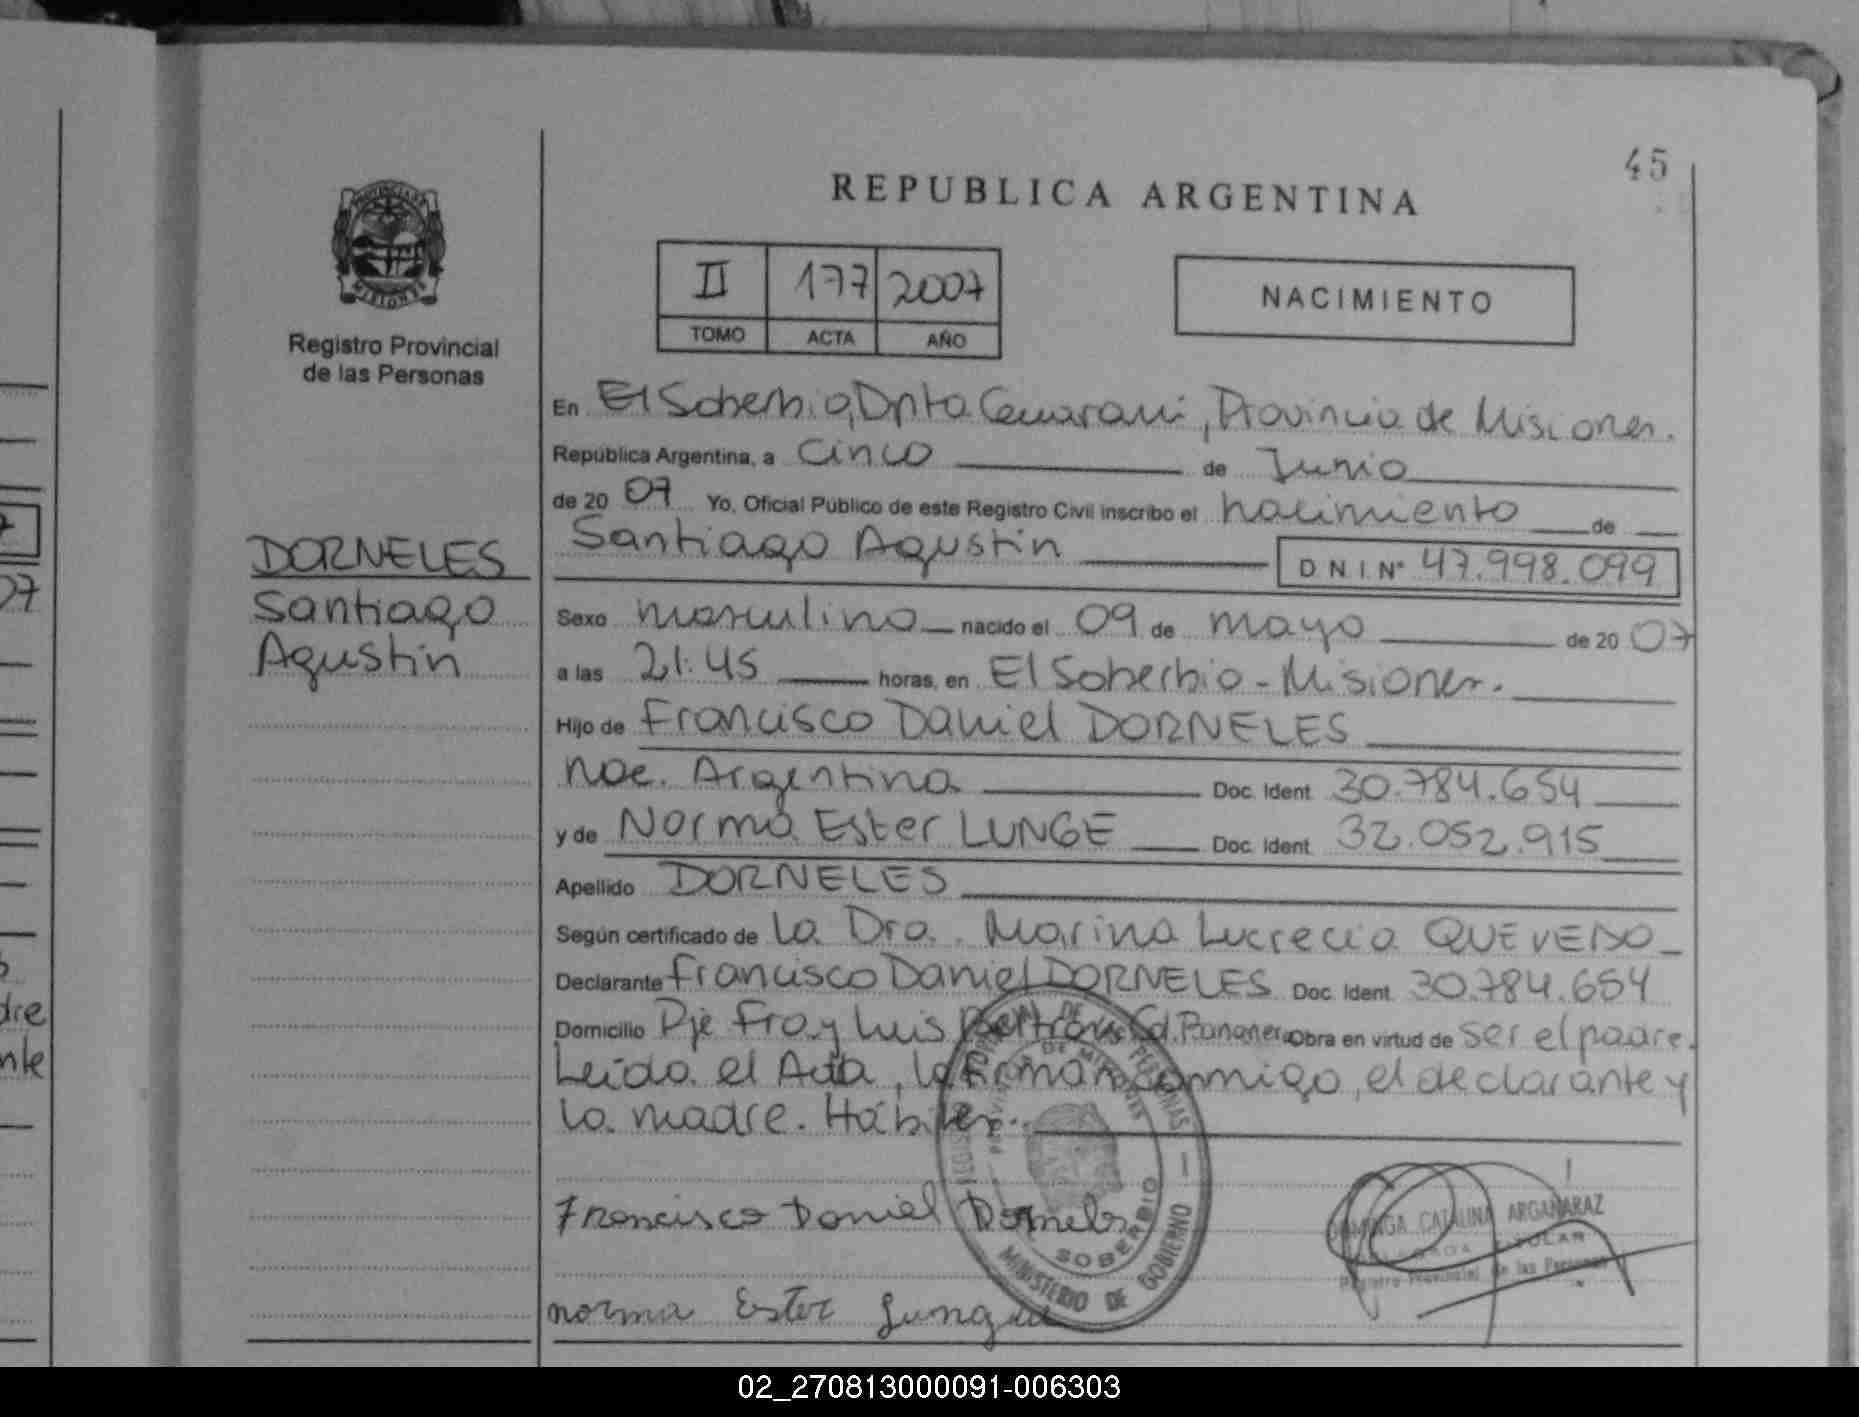 45
REPUBLICA ARGENTINA
PROVINCIA DE
MISIONES
Registro Provincial
de las Personas
II 177 2007
TOMO ACTA AÑO
NACIMIENTO
En El Soberbio, Dpto Guarani, Provincia de Misiones.
República Argentina, a cinco de Junio
de 20 07 Yo, Oficial Público de este Registro Civil inscribo el nacimiento de
Santiago Agustin D.N.I.Nº 47.998.099
DORNELES
Santiago
Agustin
Sexo masculino nacido el 09 de mayo de 20 07
a las 21:45 horas, en El Soberbio - Misiones.
Hijo de Francisco Daniel DORNELES
nac. Argentina Doc. Ident. 30.784.654
y de Norma Ester LUNGE Doc. Ident. 32.052.915
Apellido DORNELES
Según certificado de la Dra. Marina Lucrecia QUEVEDO
Declarante Francisco Daniel DORNELES Doc. Ident. 30.784.654
Domicilio Pje Fray Luis Beltran Cd. Obra en virtud de ser el padre.
Leida el Acta, la firman conmigo, el declarante y
la madre. Hábiles.
Francisco Daniel Dorneles
SOBERBIO
MINISTERIO DE GOBIERNO
DOMINGA CATALINA ARGAÑARAZ
TITULAR
Registro Provincial de las Personas
norma Ester
07
dre
nte
02_270813000091-006303